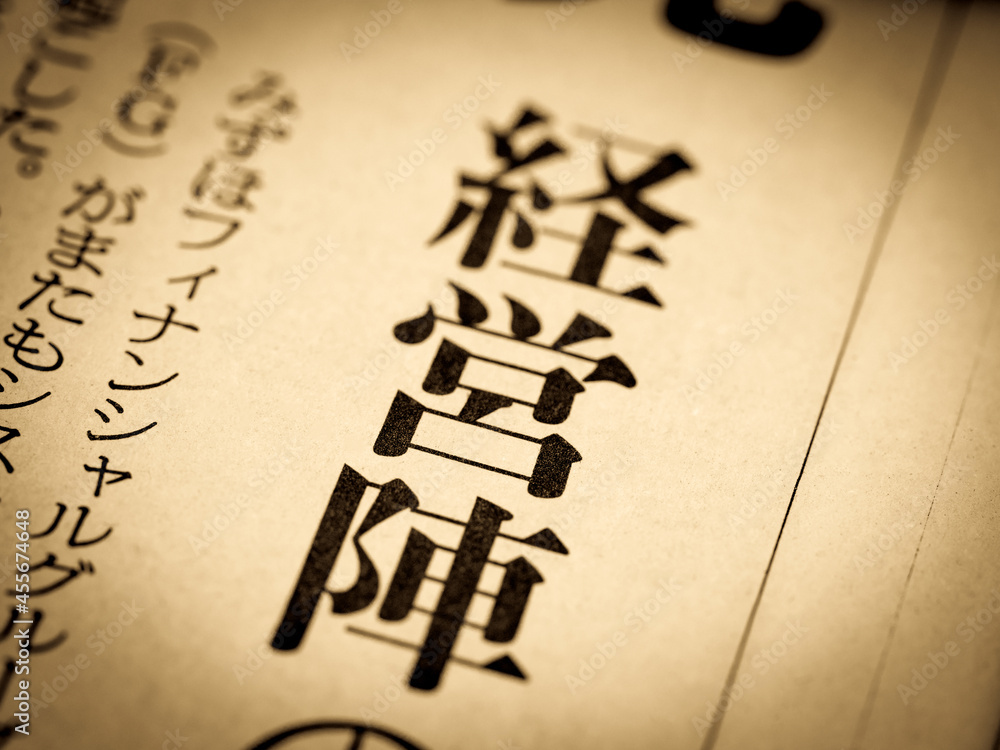 経営陣
みずほフィナンシャルグルー
(FG)がまたもシス
こした。
Adobe Stock | #455674648